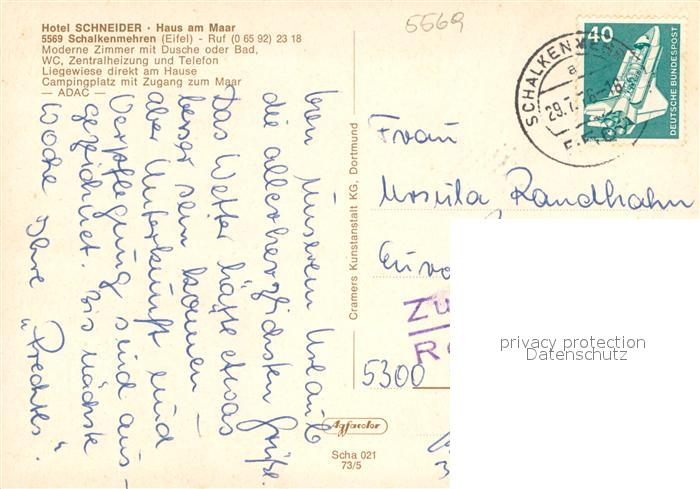 Hotel SCHNEIDER · Haus am Maar
5569 Schalkenmehren (Eifel) - Ruf (0 65 92) 23 18
Moderne Zimmer mit Dusche oder Bad,
WC, Zentralheizung und Telefon
Liegewiese direkt am Hause
Campingplatz mit Zugang zum Maar
— ADAC —
5569
SCHALKENMEHREN
40
DEUTSCHE BUNDESPOST
Von Unserem Urlaub
die allerherzlichsten Grüße.
Das Wetter hätte etwas
besser sein können –
aber Unterkunft und
Verpflegung sind aus-
gezeichnet. Bis nächste
Woche Ihre
"Prechtes".
Cramers Kunstanstalt KG, Dortmund
Frau
Ursula Randhahn
5300
Agfacolor
Scha 021
73/5
privacy protection
Datenschutz